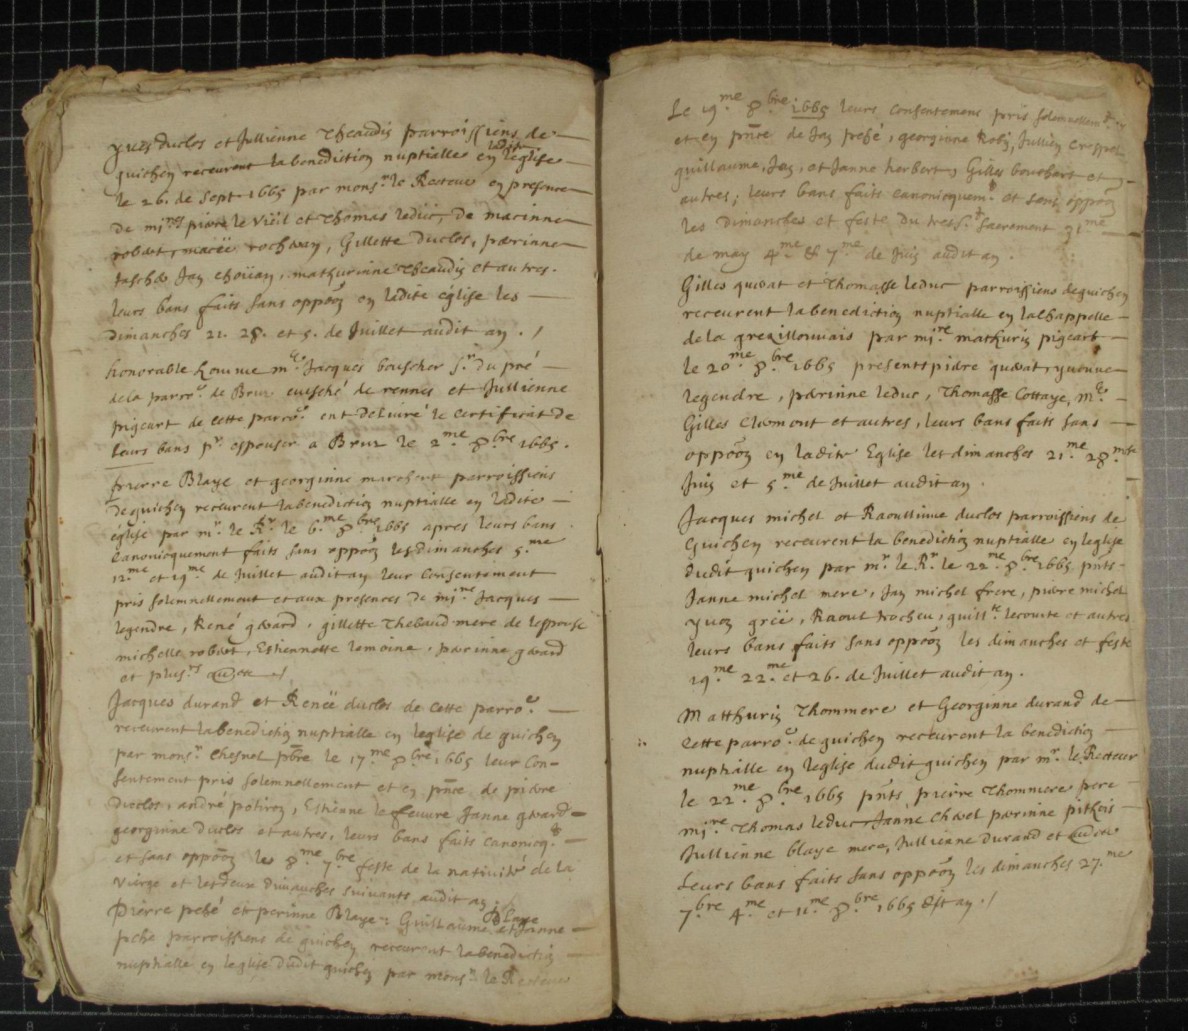 yves duclos et Jullienne Theaudis parroissiens de
guichen receurent la benediction nuptialle en ladite leglise
le 26. de Sept 1665 par monsr le Recteur en presence
de mire pierre le Vieil et Thomas leduc, De macinne
robert, macëe rochean, Gillette duclos, perinne
Jan choüan, mathurinne Theaudis et autres.
leurs bans faits sans oppoon en ladite église les
dimanches 21. 28. et 5. de Juillet audit an . /
honorable homme me. Jacques bouscher sr. du pré
de la parroe. de Bruz evesché de rennes et Jullienne
pigeart de cette parroe. ont delivré le certificat de
leurs bans pr. espouser a Bruz le 2me 8bre 1665.
pierre Blaye et georginne marchant parroissiens
de guichen receurent la benediction nuptialle en ladite
église par mr. le Rr. le 6.me 8bre 1665 apres leurs bans
canonicquement faits sans oppoon les dimanches 5.me
12.me et 19me de Juillet audit an leur consentement
pris solemnellement et aux presences de mire. Jacques
legendre, René gerard, gillette Thebaud mere de lespouse
michelle robert, Estiennette lemoine, perinne gerard
et plusrs autres /
Jacques durand et Renëe duclos de cette parroe.
receurent la benediction nuptialle en leglise de guichen
par monsr. Chesnel pbre le 17.me 8bre 1665 leur con-
sentement pris solemnellement et en pnce de pierre
duclos, andré potiron, Estienne lefeuvre Janne gerard
georginne duclos et autres, leurs bans faits canonicq.
et sans oppoon les 8me 7bre feste de la nativité de la
Vierge et les deux dimanches suivants audit an
Pierre peschë et perinne Blaye: Guillaume Blaye et Janne
peschë parroissiens de guichen receurent la benediction
nuptialle en leglise dudit guichen par monsr. le Recteur
Le 19me 8bre 1665 leurs consentemens pris solemnellemt
et en pnce de Jan peschë, georginne Robin, Jullien
guillaume, Jan, et Janne herbert, Gilles bouchart et
autres; leurs bans faits canonicquemt. et sans oppoon
les dimanches et feste du tres St. Sacrement 31me
de may 4me & 7me de Juin audit an.
Gilles querat et Thomasse leduc parroissiens de guichen
receurent la benediction nuptialle en la chappelle
de la grezillonnais par mire mathurin pigeart
le 20me 8bre 1665 presents pierre querat, yvonne
legendre, perinne leduc, Thomasse Cottaye, me.
Gilles Clermont et autres, leurs bans faits sans
oppoon en ladite Eglise les dimanches 21me 28me
Juin et 5.me de Juillet audit an.
Jacques michel et Raoullinne duclos parroissiens de
Guichen receurent la benediction nuptialle en leglise
dudit guichen par mr. le Rr. le 22me 8bre 1665 pnts.
Janne michel mere, Jan michel frere, pierre michel
yvon grëe, Raoul rocheu, guille. lecomte et autres
leurs bans faits sans oppoon les dimanches et feste
19me 22me et 26. de Juillet audit an.
Matthurin Thommere et Georginne durand de
cette parroe. de guichen receurent la benediction
nuptialle en leglise dudit guichen par mr. le Recteur
le 22.me 8bre 1665 pnts pierre Thommere pere
mire Thomas leduc Janne Chesel perinne pithois
Jullienne blaye mere, Jullienne Durand et autres
Leurs bans faits sans oppoon les dimanches 27.me
7bre 4.me et 11.me 8bre 1665 dit an . /